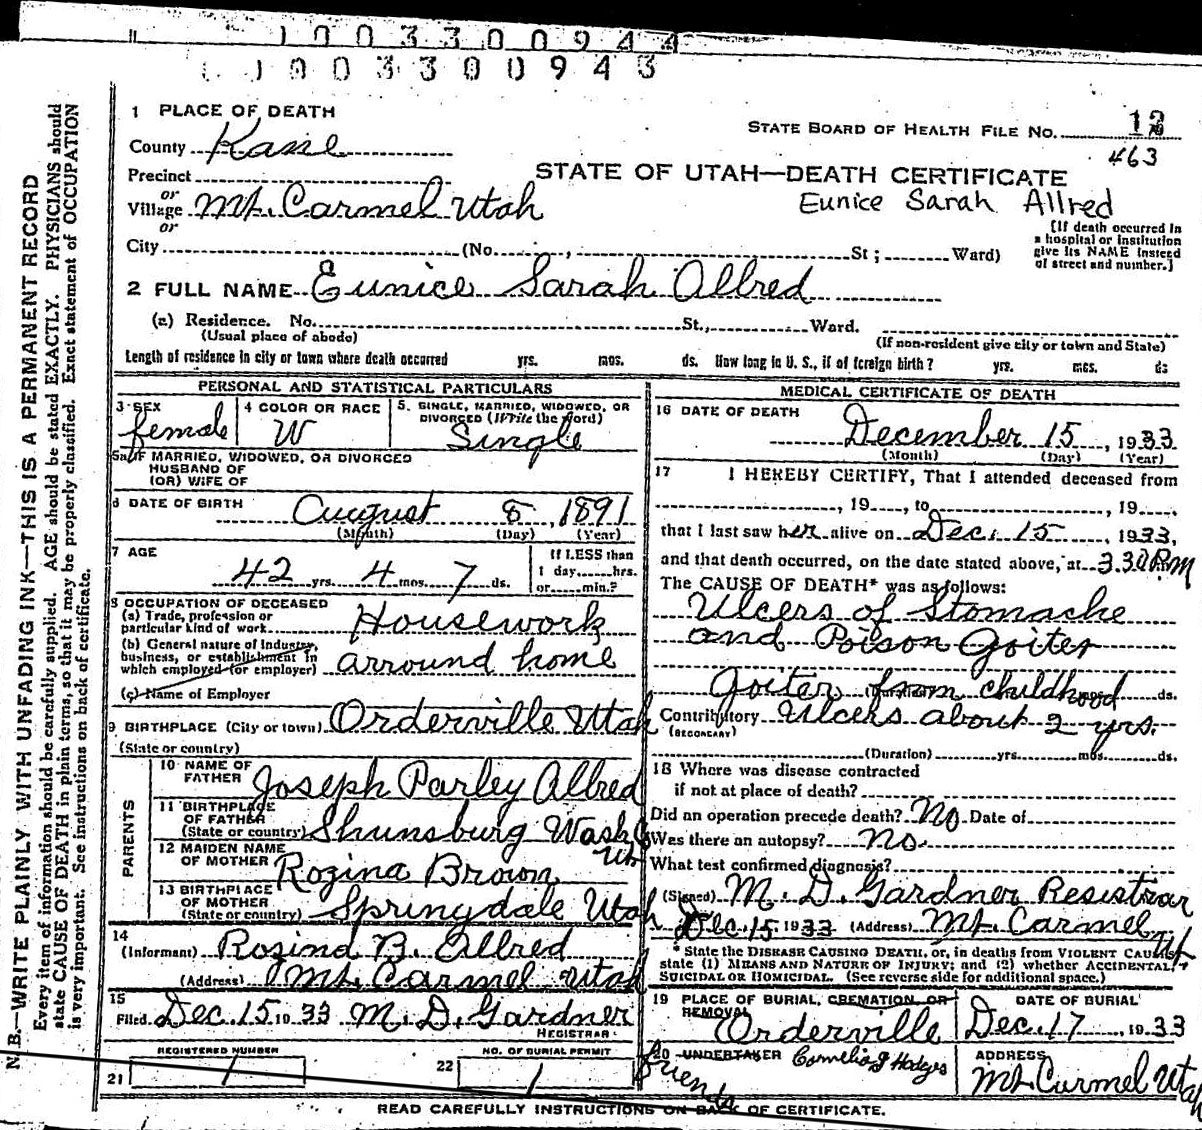 1003300944
1003300943
N. B.—WRITE PLAINLY WITH UNFADING INK—THIS IS A PERMANENT RECORD
Every item of information should be carefully supplied. AGE should be stated EXACTLY. PHYSICIANS should
state CAUSE OF DEATH in plain terms, so that it may be properly classified. Exact statement of OCCUPATION
is very important. See instructions on back of certificate.
1 PLACE OF DEATH
STATE BOARD OF HEALTH FILE NO.
463
County Kane
STATE OF UTAH—DEATH CERTIFICATE
Precinct
Eunice Sarah Allred
or
Village Mt. Carmel Utah
or
City (No. , St ; Ward)
[If death occurred in
a hospital or institution
give its NAME instead
of street and number.]
2 FULL NAME Eunice Sarah Allred
(a) Residence. No. St., Ward.
(Usual place of abode) (If non-resident give city or town and State)
Length of residence in city or town where death occurred yrs. mos. ds. How long in U. S., if of foreign birth? yrs. mos. ds
PERSONAL AND STATISTICAL PARTICULARS
3 SEX
female
4 COLOR OR RACE
W
5. SINGLE, MARRIED, WIDOWED, OR
DIVORCED (Write the word)
Single
5a IF MARRIED, WIDOWED, OR DIVORCED
HUSBAND OF
(OR) WIFE OF
6 DATE OF BIRTH
August 8, 1891
(Month) (Day) (Year)
7 AGE
42 yrs. 4 mos. 7 ds.
If LESS than
1 day, hrs.
or min.?
8 OCCUPATION OF DECEASED
(a) Trade, profession or
particular kind of work Housework
(b) General nature of Industry,
business, or establishment in
which employed (or employer) arround home
(c) Name of Employer
9 BIRTHPLACE (City or town) Orderville Utah
(State or country)
PARENTS
10 NAME OF
FATHER Joseph Parley Allred
11 BIRTHPLACE
OF FATHER
(State or country) Shunsburg Wash
Ut
12 MAIDEN NAME
OF MOTHER Rozina Brown
13 BIRTHPLACE
OF MOTHER
(State or country) Springdale Utah
14
(Informant) Rozina B. Allred
(Address) Mt. Carmel Utah
15
Filed Dec. 15 1933 M. D. Gardner
REGISTRAR
REGISTERED NUMBER
21 1
NO. OF BURIAL PERMIT
22 1
MEDICAL CERTIFICATE OF DEATH
16 DATE OF DEATH
December 15, 1933
(Month) (Day) (Year)
17 I HEREBY CERTIFY, That I attended deceased from
, 19 , to , 19
that I last saw her alive on Dec. 15, 1933,
and that death occurred, on the date stated above, at 3.30 P.m
The CAUSE OF DEATH* was as follows:
Ulcers of Stomache
and Poison Goiter
Goiter from childhood ds.
Contributory Ulcers about 2 yrs.
(SECONDARY)
(Duration) yrs. mos. ds.
18 Where was disease contracted
if not at place of death?
Did an operation precede death? No Date of
Was there an autopsy? no.
What test confirmed diagnosis?
(Signed) M. D. Gardner Resistrar
Dec. 15 1933 (Address) Mt. Carmel
Ut
* State the DISEASE CAUSING DEATH, or, in deaths from VIOLENT CAUSES
state (1) MEANS AND NATURE OF INJURY; and (2) whether ACCIDENTAL,
SUICIDAL OR HOMICIDAL. (See reverse side for additional space.)
19 PLACE OF BURIAL, CREMATION, OR
REMOVAL
Orderville
DATE OF BURIAL
Dec. 17, 1933
20 UNDERTAKER Cornelia J Hodges
friends
ADDRESS
Mt Carmel Utah
READ CAREFULLY INSTRUCTIONS ON BACK OF CERTIFICATE.